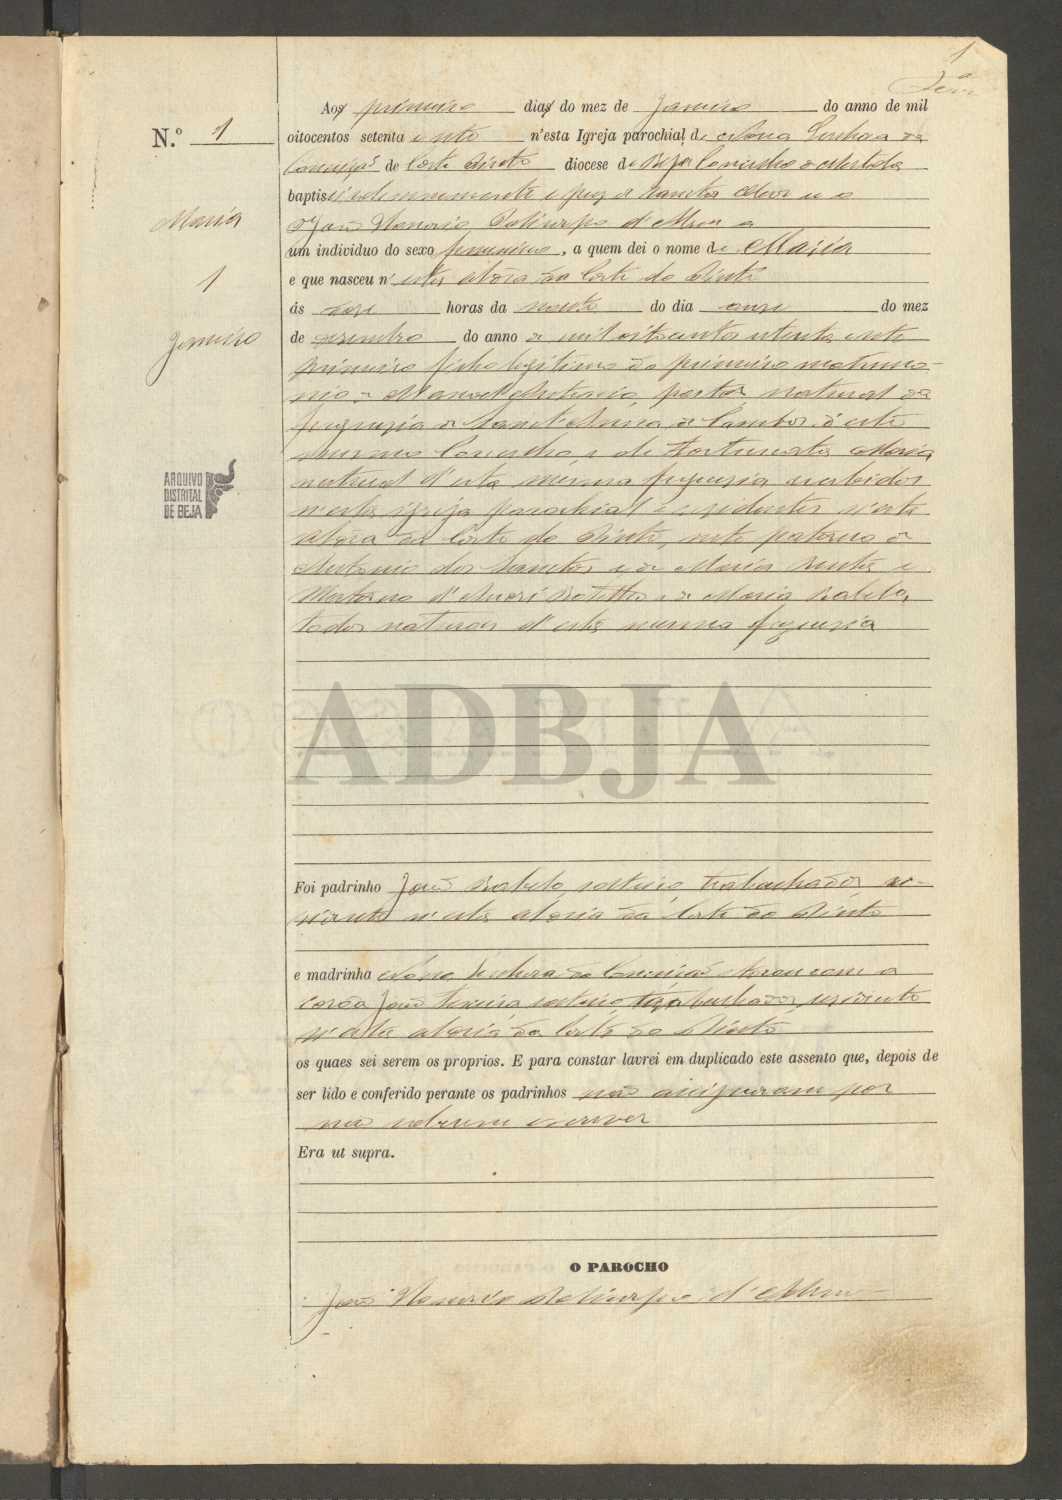 1
N.º 1
Maria
1
Janeiro
Aos primeiro dias do mez de Janeiro do anno de mil
oitocentos setenta e sete n'esta Igreja parochial de Nossa Senhora da
Conceição de Corte do Pinto diocese de Beja Concelho de Mertola
baptisei solemnemente e puz os Sanctos Oleos eu o
João
um individuo do sexo feminino, a quem dei o nome de Maria
e que nasceu n'esta aldêa da Corte do Pinto
ás horas da noute do dia onze do mez
de dezembro do anno de mil oitocentos setenta e seis
primeiro filho legitimo do primeiro matrimo-
nio de Manoel Antonio, pastor, natural da
freguezia de Sanct'Anna de Cambas d'este
mesmo Concelho, e de Fortunata Maria
natural d'esta mesma freguezia recebidos
n'esta igreja parochial e residentes n'esta
aldêa da Corte do Pinto, neto paterno de
Antonio dos Sanctos e de Maria e
Materno d' e de Maria Rabela,
todos naturaes d'esta mesma freguezia
ARQUIVO
DISTRITAL
DE BEJA
ADBJA
Foi padrinho João Rabelo, solteiro, trabalhador, re-
sidente n'esta aldeia da Corte do Pinto
e madrinha Nossa Senhora da Conceição tocou com a
corôa João solteiro trabalhador, residente
n'esta aldeia da Corte do Pinto
os quaes sei serem os proprios. E para constar lavrei em duplicado este assento que, depois de
ser lido e conferido perante os padrinhos não assignaram por
não saberem escrever
Era ut supra.
O PAROCHO
João